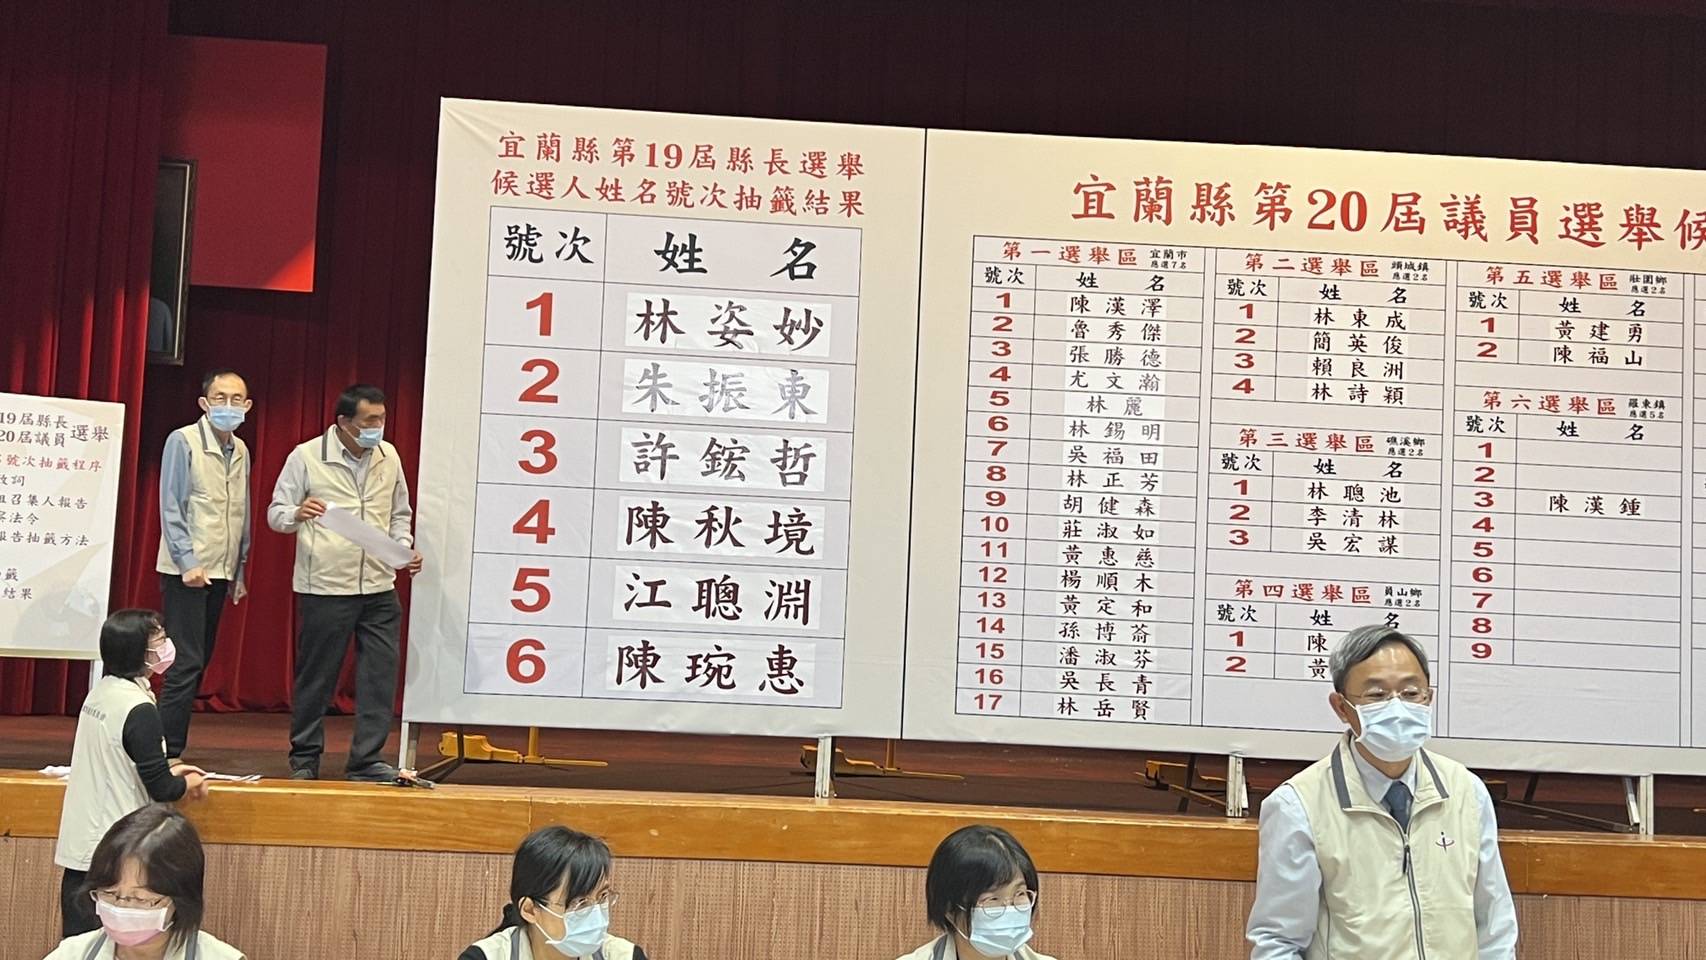 19屆縣長
20屆議員選舉
號次抽籤程序
致詞
召集人報告
法令
報告抽籤方法
籤
結果
宜蘭縣第19屆縣長選舉
候選人姓名號次抽籤結果
號次 姓名
1 林姿妙
2 朱振東
3 許鋐哲
4 陳秋境
5 江聰淵
6 陳琬惠
宜蘭縣第20屆議員選舉候
第一選舉區 宜蘭市 應選7名
號次 姓名
1 陳漢澤
2 魯秀傑
3 張勝德
4 尤文瀚
5 林麗
6 林錫明
7 吳福田
8 林正芳
9 胡健森
10 莊淑如
11 黃惠慈
12 楊順木
13 黃定和
14 孫博萮
15 潘淑芬
16 吳長青
17 林岳賢
第二選舉區 頭城鎮 應選2名
號次 姓名
1 林東成
2 簡英俊
3 賴良洲
4 林詩穎
第三選舉區 礁溪鄉 應選2名
號次 姓名
1 林聰池
2 李清林
3 吳宏謀
第四選舉區 員山鄉 應選2名
號次 姓名
1 陳
2 黃
第五選舉區 壯圍鄉 應選2名
號次 姓名
1 黃建勇
2 陳福山
第六選舉區 羅東鎮 應選5名
號次 姓名
1
2
3 陳漢鍾
4
5
6
7
8
9